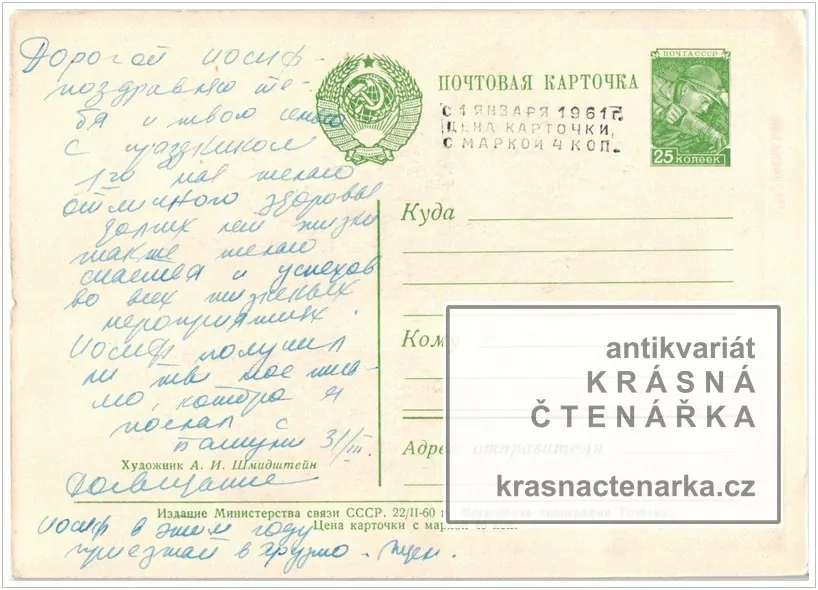 Дорогой иосиф.
поздравляю те-
бя и твою семью
с праздником
1го мая желаю
отличного здоровья
долгих лет жизни
также желаю
счастья и успехов
во всех жизненых
мероприятиях.
Иосиф получил
ли ты мое пись-
мо, которе я
послал с
31/III.
Художник А. И. Шмидштейн
Досвидание
Издание Министерства связи СССР. 22/II-60 г.
Цена карточки с маркой 40 коп.
иосиф в этом году
приезжай в грузию. ждем.
ПОЧТОВАЯ КАРТОЧКА
С 1 ЯНВАРЯ 1961 Г.
ЦЕНА КАРТОЧКИ
С МАРКОЙ 4 КОП.
ПОЧТА СССР
25 КОПЕЕК
Куда
Кому
Адрес отправителя
antikvariát
KRÁSNÁ
ČTENÁŘKA
krasnactenarka.cz